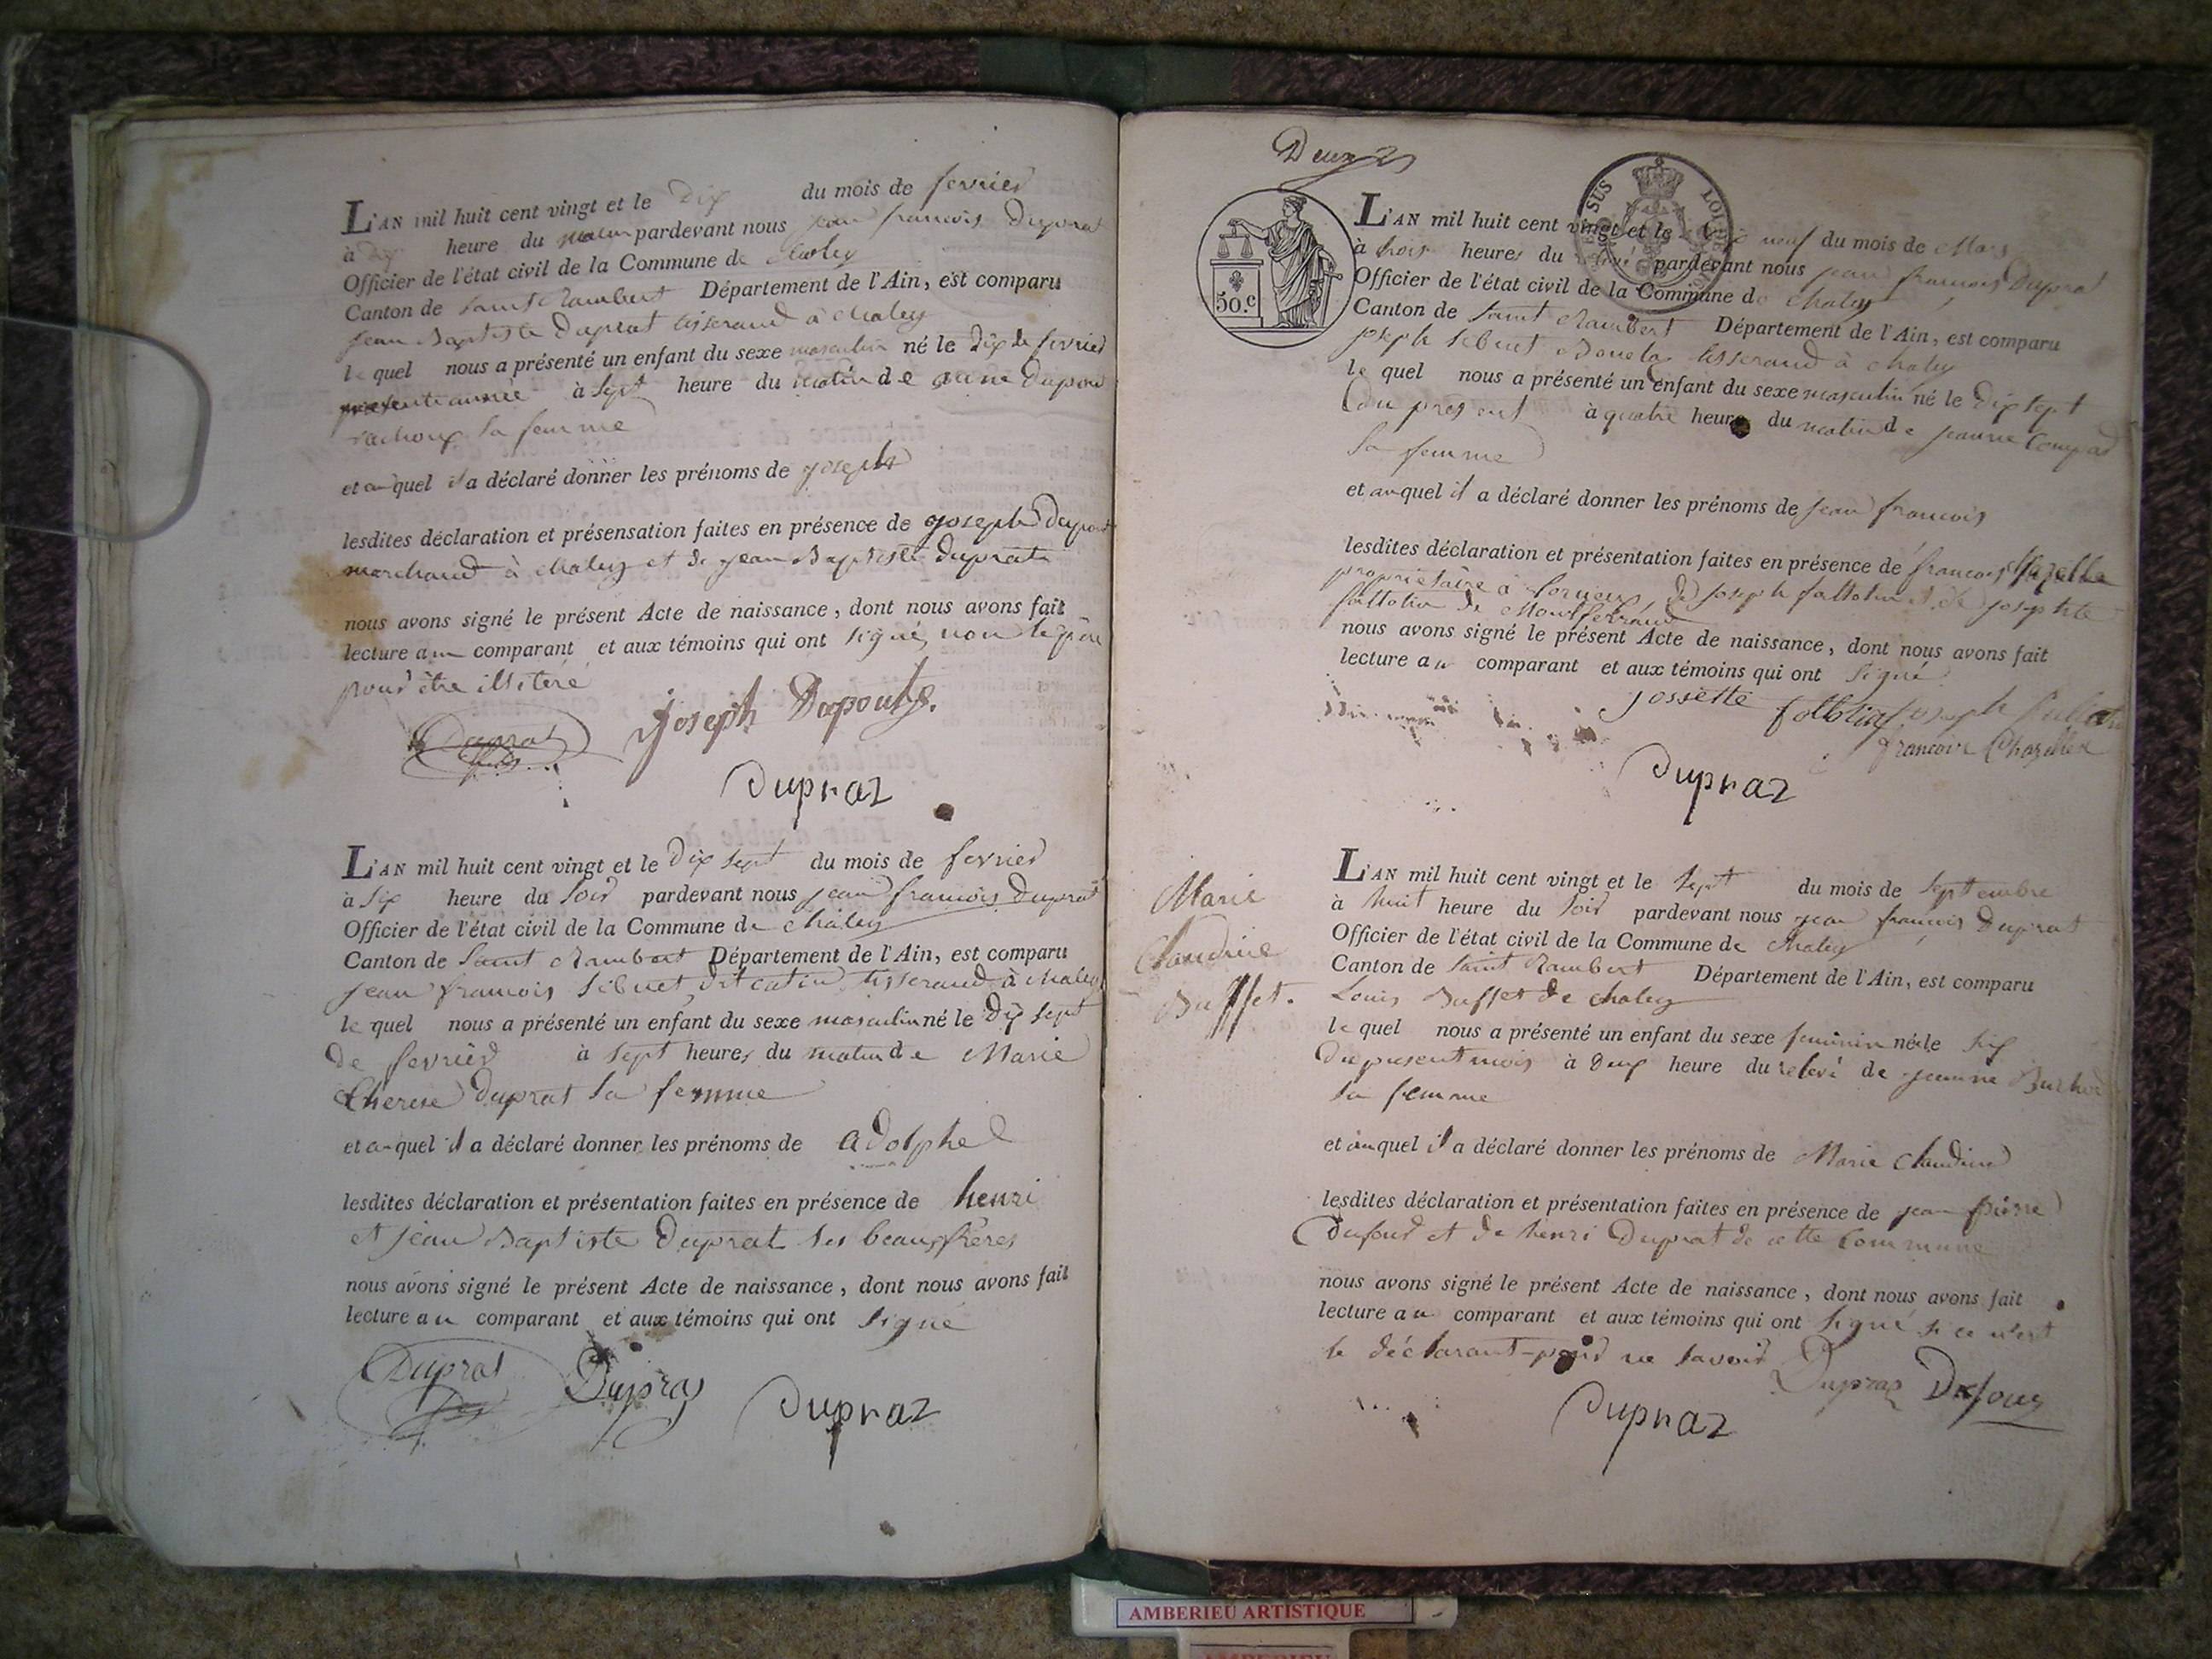 L'AN mil huit cent vingt et le Dix du mois de fevrier
à Dix heure du matin pardevant nous jean francois Duprat
Officier de l'état civil de la Commune de Chaley
Canton de Saint Rambert Département de l'Ain, est comparu
jean Baptiste Duprat tisserand à Chaley
le quel nous a présenté un enfant du sexe masculin né le Dix de fevrier
presente année à Sept heure du matin de
sa femme
et auquel il a déclaré donner les prénoms de joseph
lesdites déclaration et présensation faites en présence de joseph
marchand à Chaley et de jean Baptiste Duprat
nous avons signé le présent Acte de naissance, dont nous avons fait
lecture au comparant et aux témoins qui ont signé, non le père
pour être illiteré
Duprat joseph
Dupraz
L'AN mil huit cent vingt et le Dix sept du mois de fevrier
à Six heure du Soir pardevant nous jean francois Duprat
Officier de l'état civil de la Commune de Chaley
Canton de Saint Rambert Département de l'Ain, est comparu
jean francois Sibuet dit catin tisserand à Chaley
le quel nous a présenté un enfant du sexe masculin né le Dix sept
De fevrier à Sept heures du matin de Marie
Therese Duprat sa femme
et auquel il a déclaré donner les prénoms de Adolphe
lesdites déclaration et présentation faites en présence de henri
et jean Baptiste Duprat ses beaux frères
nous avons signé le présent Acte de naissance, dont nous avons fait
lecture au comparant et aux témoins qui ont signé
Duprat Dupraz Dupraz
50.c
L'AN mil huit cent vingt et le Dix neuf du mois de Mars
à trois heures du relevé pardevant nous jean francois Duprat
Officier de l'état civil de la Commune de Chaley
Canton de Saint Rambert Département de l'Ain, est comparu
joseph Sibuet tisserand à Chaley
le quel nous a présenté un enfant du sexe masculin né le Dix sept
du present à quatre heures du matin de jeanne
sa femme
et auquel il a déclaré donner les prénoms de jean francois
lesdites déclaration et présentation faites en présence de francois
propriétaire à de joseph et de josephte
de Montferrand
nous avons signé le présent Acte de naissance, dont nous avons fait
lecture au comparant et aux témoins qui ont signé
jossette joseph
francois
Dupraz
Marie
Claudine
Buffet.
L'AN mil huit cent vingt et le Sept du mois de Septembre
à huit heure du Soir pardevant nous jean francois Duprat
Officier de l'état civil de la Commune de Chaley
Canton de Saint Rambert Département de l'Ain, est comparu
Louis Buffet de Chaley
le quel nous a présenté un enfant du sexe feminin née le Six
Du present mois à Deux heure du relevé de jeanne
sa femme
et auquel il a déclaré donner les prénoms de Marie Claudine
lesdites déclaration et présentation faites en présence de jean pierre
Dufour et de henri Duprat de cette Commune
nous avons signé le présent Acte de naissance, dont nous avons fait
lecture au comparant et aux témoins qui ont signé si ce n'est
le déclarant pour ne savoir Dupraz Dufour
Dupraz
AMBERIEU ARTISTIQUE
AMBERIEU